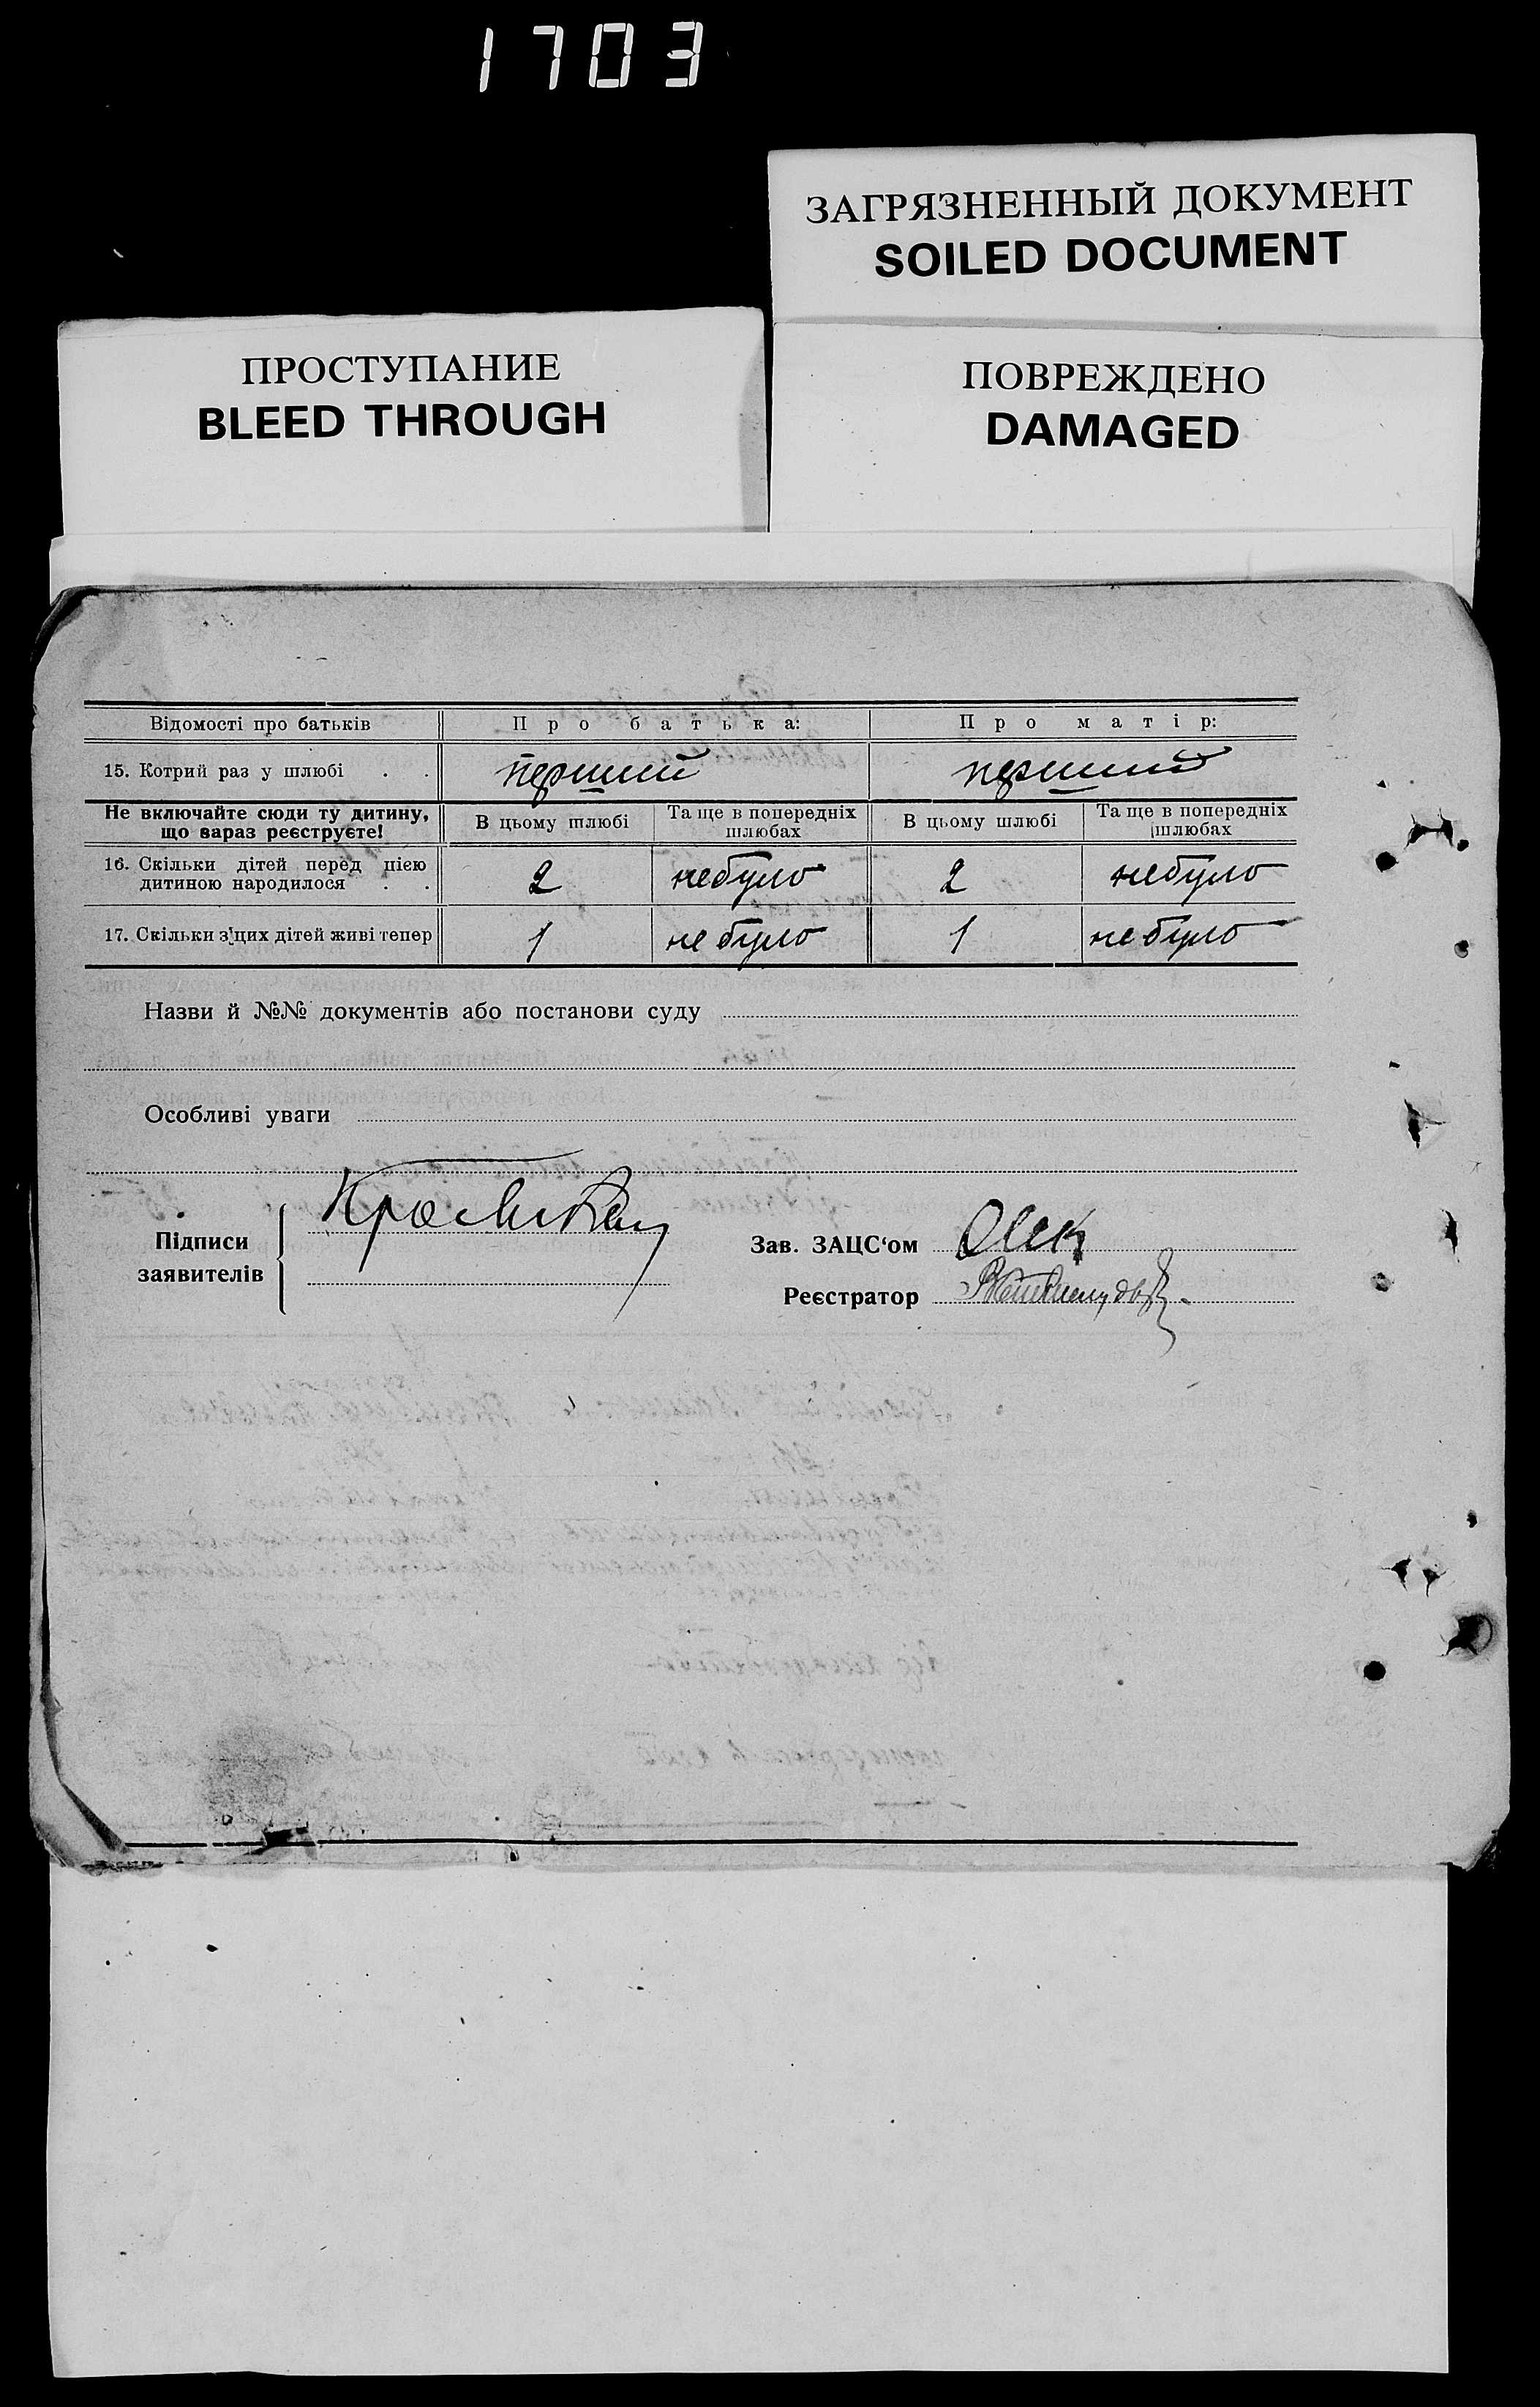 1703
ЗАГРЯЗНЕННЫЙ ДОКУМЕНТ
SOILED DOCUMENT
ПРОСТУПАНИЕ
BLEED THROUGH
ПОВРЕЖДЕНО
DAMAGED
Відомості про батьків Про батька: Про матір:
15. Котрий раз у шлюбі . . перший перший
Не включайте сюди ту дитину, що вараз реєструєте! В цьому шлюбі Та ще в попередніх шлюбах В цьому шлюбі Та ще в попередніх шлюбах
16. Скільки дітей перед цією
дитиною народилося . . 2 небуло 2 небуло
17. Скільки з цих дітей живі тепер 1 не було 1 не було
Назви й №№ документів або постанови суду
Особливі уваги
Підписи
заявителів
Зав. ЗАЦС‘ом
Реєстратор